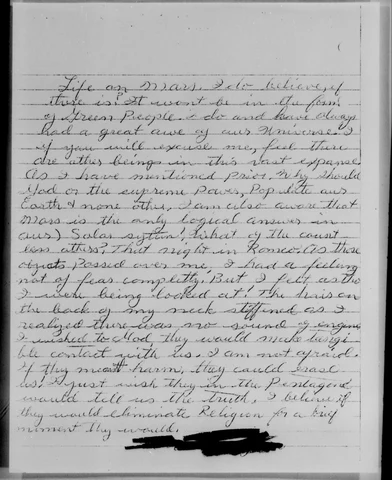 Life on Mars. I do believe, if
there is? It wont be in the form
of Green People. I do and have always
had a great awe of our Universe. I
if you will excuse me, feel there
are other beings in this vast expanse
As I have mentioned prior. Why should
God or the supreme Power, Populate our
Earth & none other. I am also aware that
Mars is the only logical answer in
our) Solar system! What of the count
less others? That night in as those
objects, Passed over me, I had a feeling
not of fear completly. But I felt as tho
I were being looked at! The hairs on
the back of my neck stiffined as I
realized there was no sound of engine
I wished to God, they would make
ble contact with us. I am not afraid.
If they ment harm, they could Erase
us! I just wish they in the Pentagon
would tell us the truth. I believe if
they would eliminate Religion for a brief
moment they would.